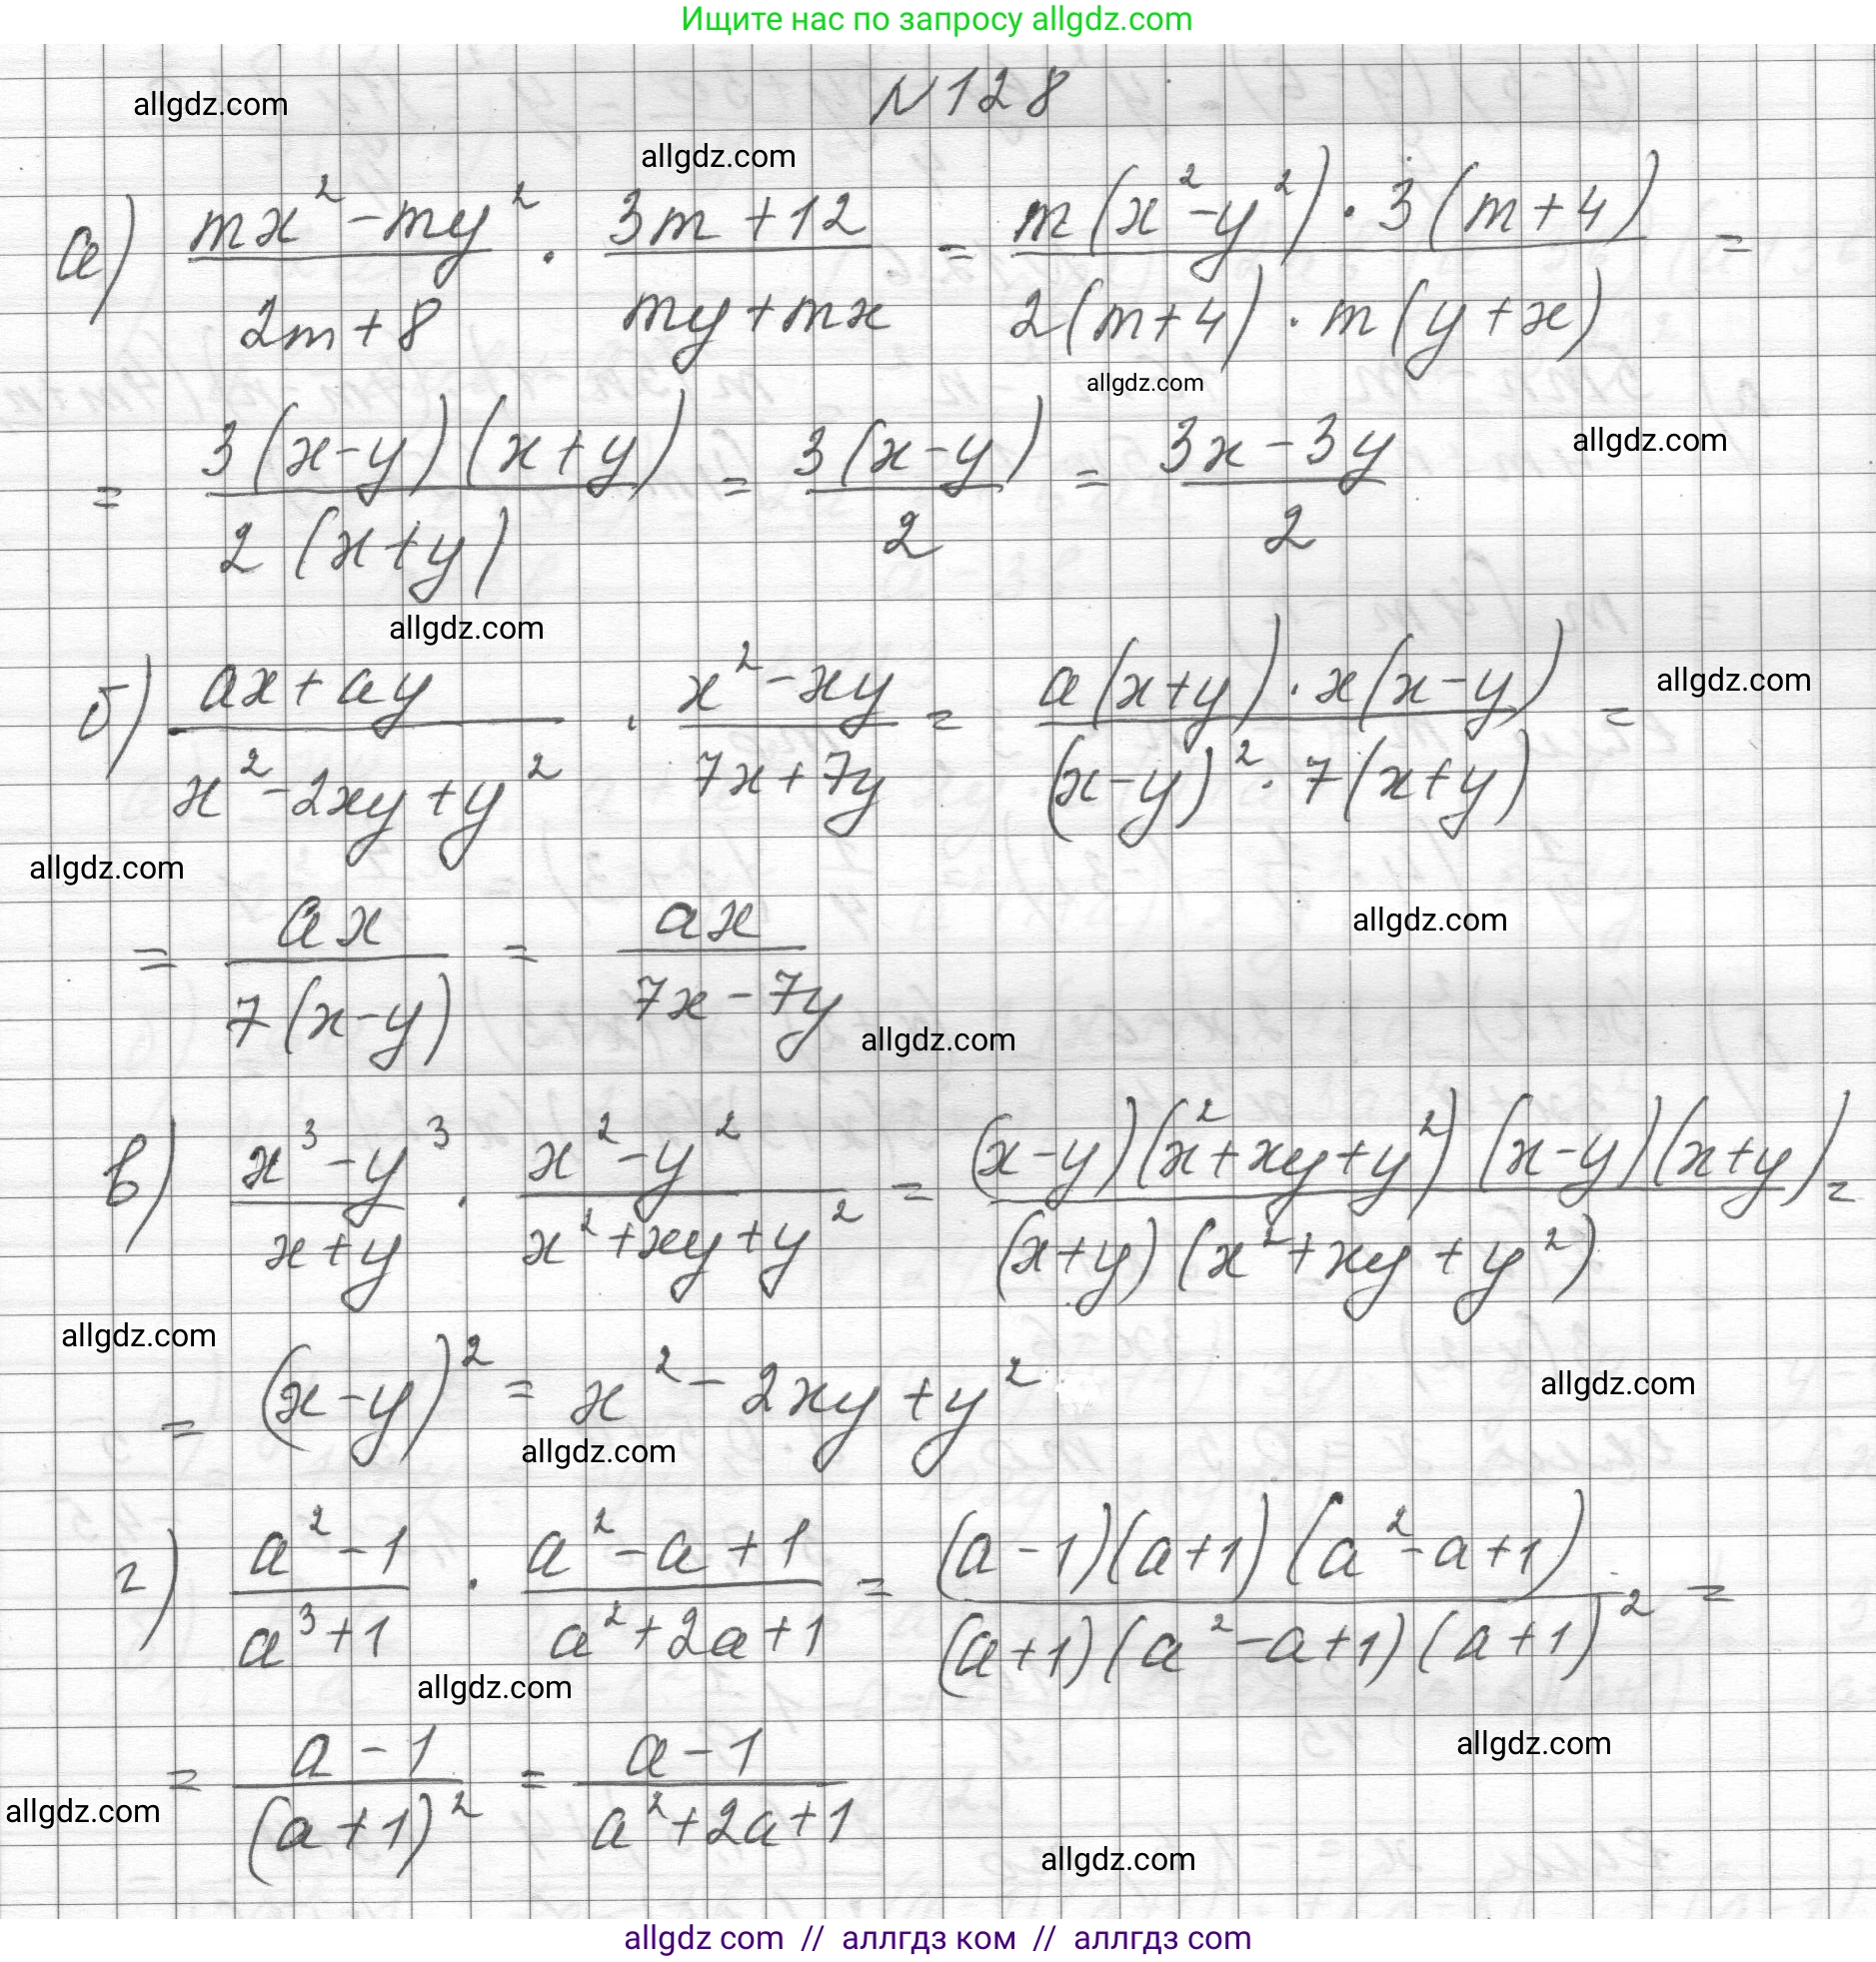 Ищите нас по запросу allgdz.com
N 128
allgdz.com
allgdz.com
а) (mx² - my²)/(2m + 8) · (3m + 12)/(my + mx) = (m(x² - y²) · 3(m + 4))/(2(m + 4) · m(y + x)) =
allgdz.com
= (3(x - y)(x + y))/(2(x + y)) = (3(x - y))/2 = (3x - 3y)/2
allgdz.com
allgdz.com
б) (ax + ay)/(x² - 2xy + y²) · (x² - xy)/(7x + 7y) = (a(x + y) · x(x - y))/((x - y)² · 7(x + y)) =
allgdz.com
allgdz.com
= ax/(7(x - y)) = ax/(7x - 7y)
allgdz.com
allgdz.com
в) (x³ - y³)/(x + y) · (x² - y²)/(x² + xy + y²) = ((x - y)(x² + xy + y²)(x - y)(x + y))/((x + y)(x² + xy + y²)) =
allgdz.com
= (x - y)² = x² - 2xy + y²
allgdz.com
allgdz.com
г) (a² - 1)/(a³ + 1) · (a² - a + 1)/(a² + 2a + 1) = ((a - 1)(a + 1)(a² - a + 1))/((a + 1)(a² - a + 1)(a + 1)²) =
allgdz.com
allgdz.com
= (a - 1)/((a + 1)²) = (a - 1)/(a² + 2a + 1)
allgdz.com
allgdz.com
allgdz com // аллгдз ком // аллгдз com